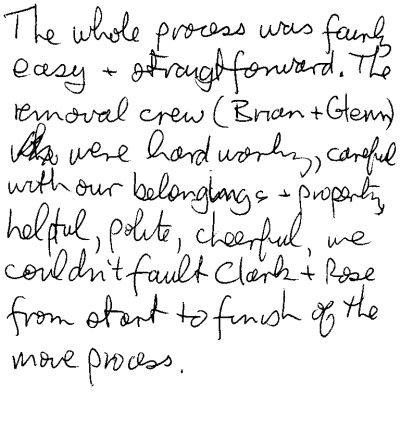 The whole process was fairly
easy + straightforward. The
removal crew (Brian + Glenn)
were hard working, careful
with our belongings + property,
helpful, polite, cheerful, we
couldn't fault Clark + Rose
from start to finish of the
move process.